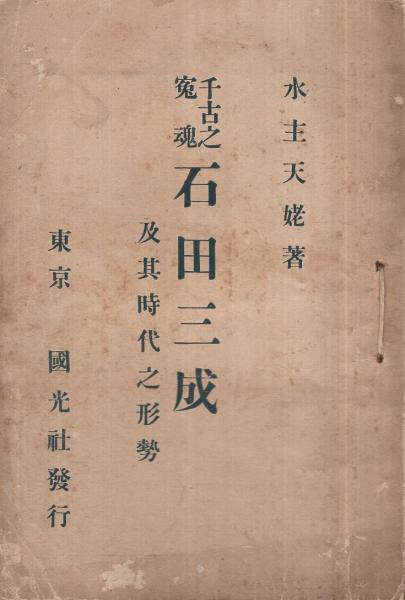 水主天姥著
千古之
冤魂
石田三成
及其時代之形勢
東京 國光社發行